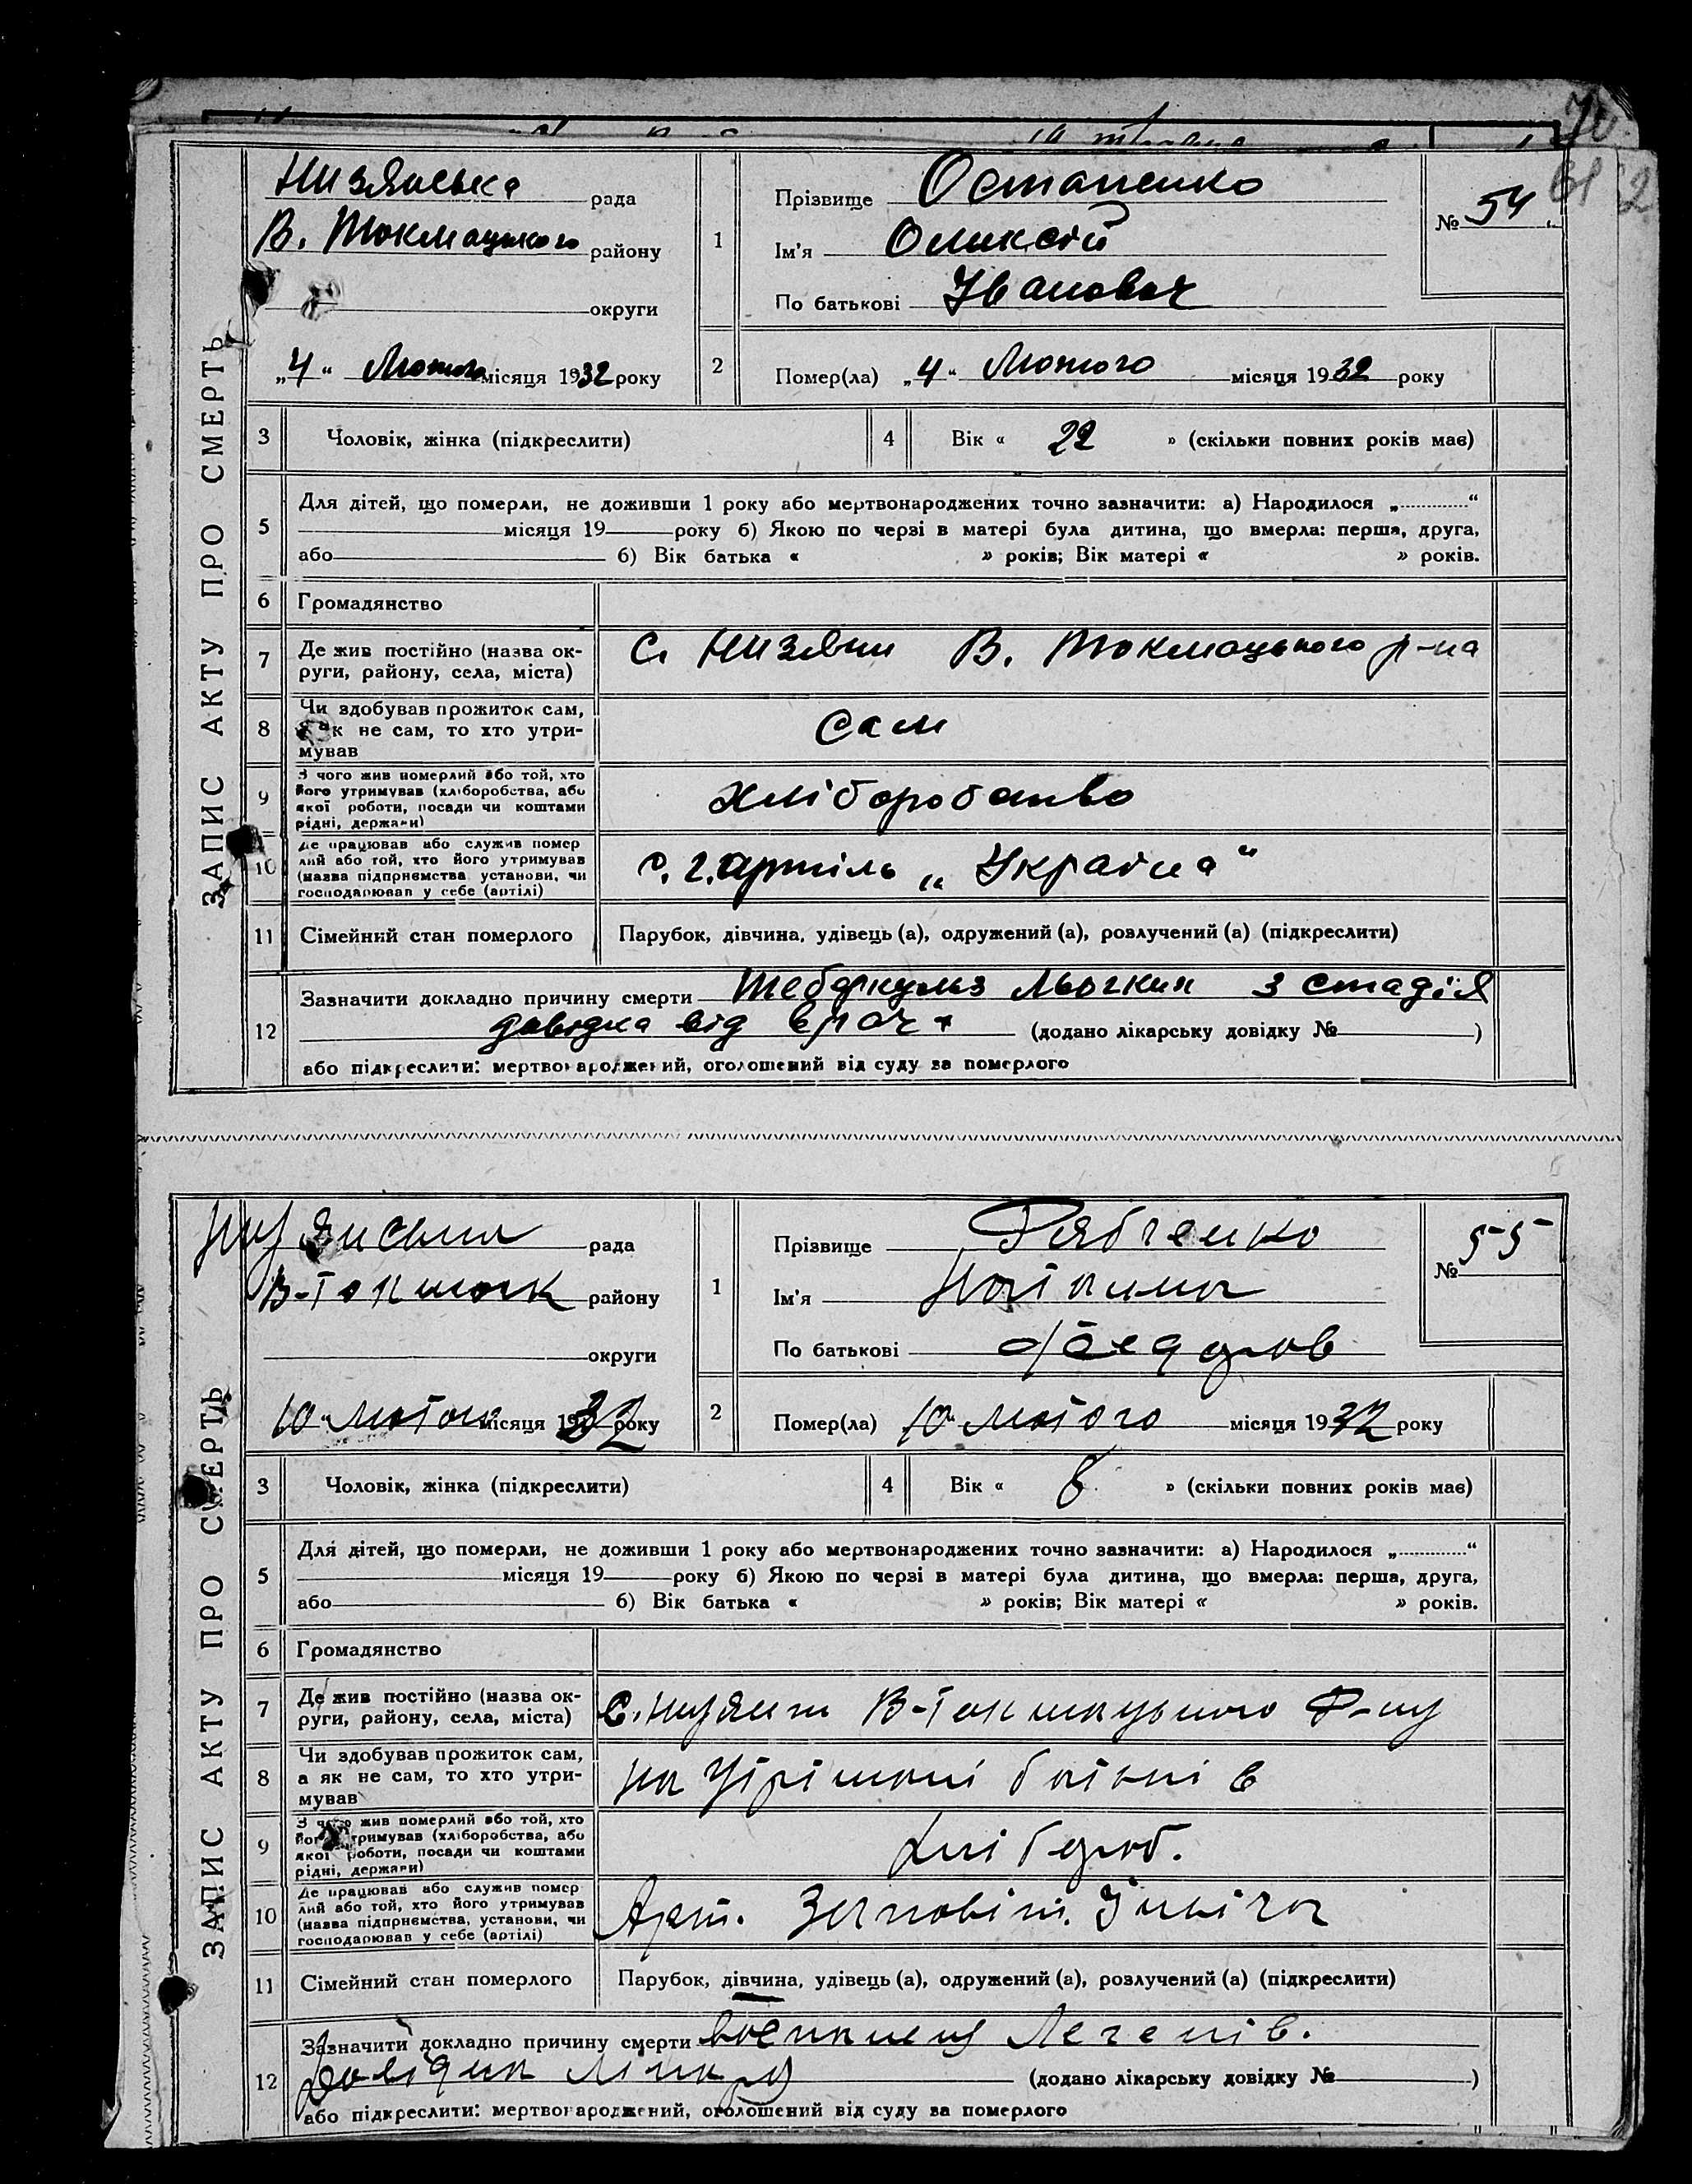 61 2
ЗАПИС АКТУ ПРО СМЕРТЬ
Низянська рада
В. Токмацького району
округи
„4“ Лютого місяця 1932 року
1
Прізвище Остапенко
Ім'я Оликсій
По батькові Іванович
№ 54
2
Помер(ла) „4“ Лютого місяця 1932 року
3 Чоловік, жінка (підкреслити)
4 Вік « 22 » (скільки повних років має)
5 Для дітей, що померли, не доживши 1 року або мертвонароджених точно зазначити: а) Народилося „ “
місяця 19 року б) Якою по черзі в матері була дитина, що вмерла: перша, друга,
або б) Вік батька « » років; Вік матері « » років.
6 Громадянство
7 Де жив постійно (назва ок-
руги, району, села, міста)
С. Низяни В. Токмацького р-на
8 Чи здобував прожиток сам,
а як не сам, то хто утри-
мував
Сам
9 З чого жив померлий або той, хто
його утримував (хліборобства, або
якої роботи, посади чи коштами
рідні, держави)
хліборобство
10 Де працював або служив помер
лий або той, хто його утримував
(назва підприємства установи, чи
господарював у себе (артілі)
с. г. артіль „Україна“
11 Сімейний стан померлого
Парубок, дівчина, удівець (а), одружений (а), розлучений (а) (підкреслити)
12 Зазначити докладно причину смерти Теберкульз Льогких 3 стадія
довідка від врача (додано лікарську довідку № )
або підкреслити: мертвонароджений, оголошений від суду за померлого
ЗАПИС АКТУ ПРО СМЕРТЬ
рада
В-Токмак району
округи
10“ лютого місяця 1932 року
1
Прізвище Рябченко
Ім'я
По батькові Федоров
№ 55
2
Помер(ла) 10“ лютого місяця 1932 року
3 Чоловік, жінка (підкреслити)
4 Вік « » (скільки повних років має)
5 Для дітей, що померли, не доживши 1 року або мертвонароджених точно зазначити: а) Народилося „ “
місяця 19 року б) Якою по черзі в матері була дитина, що вмерла: перша, друга,
або б) Вік батька « » років; Вік матері « » років.
6 Громадянство
7 Де жив постійно (назва ок-
руги, району, села, міста)
С. Низяни В-Токмацького Р-ну
8 Чи здобував прожиток сам,
а як не сам, то хто утри-
мував
на утрімані батьків
9 З чого жив померлий або той, хто
його утримував (хліборобства, або
якої роботи, посади чи коштами
рідні, держави)
хлібороб.
10 Де працював або служив помер
лий або той, хто його утримував
(назва підприємства, установи, чи
господарював у себе (артілі)
Арт. Заповіт. Ілліча
11 Сімейний стан померлого
Парубок, дівчина, удівець (а), одружений (а), розлучений (а) (підкреслити)
12 Зазначити докладно причину смерти Легенів.
Довідка лікаря (додано лікарську довідку № )
або підкреслити: мертвонароджений, оголошений від суду за померлого